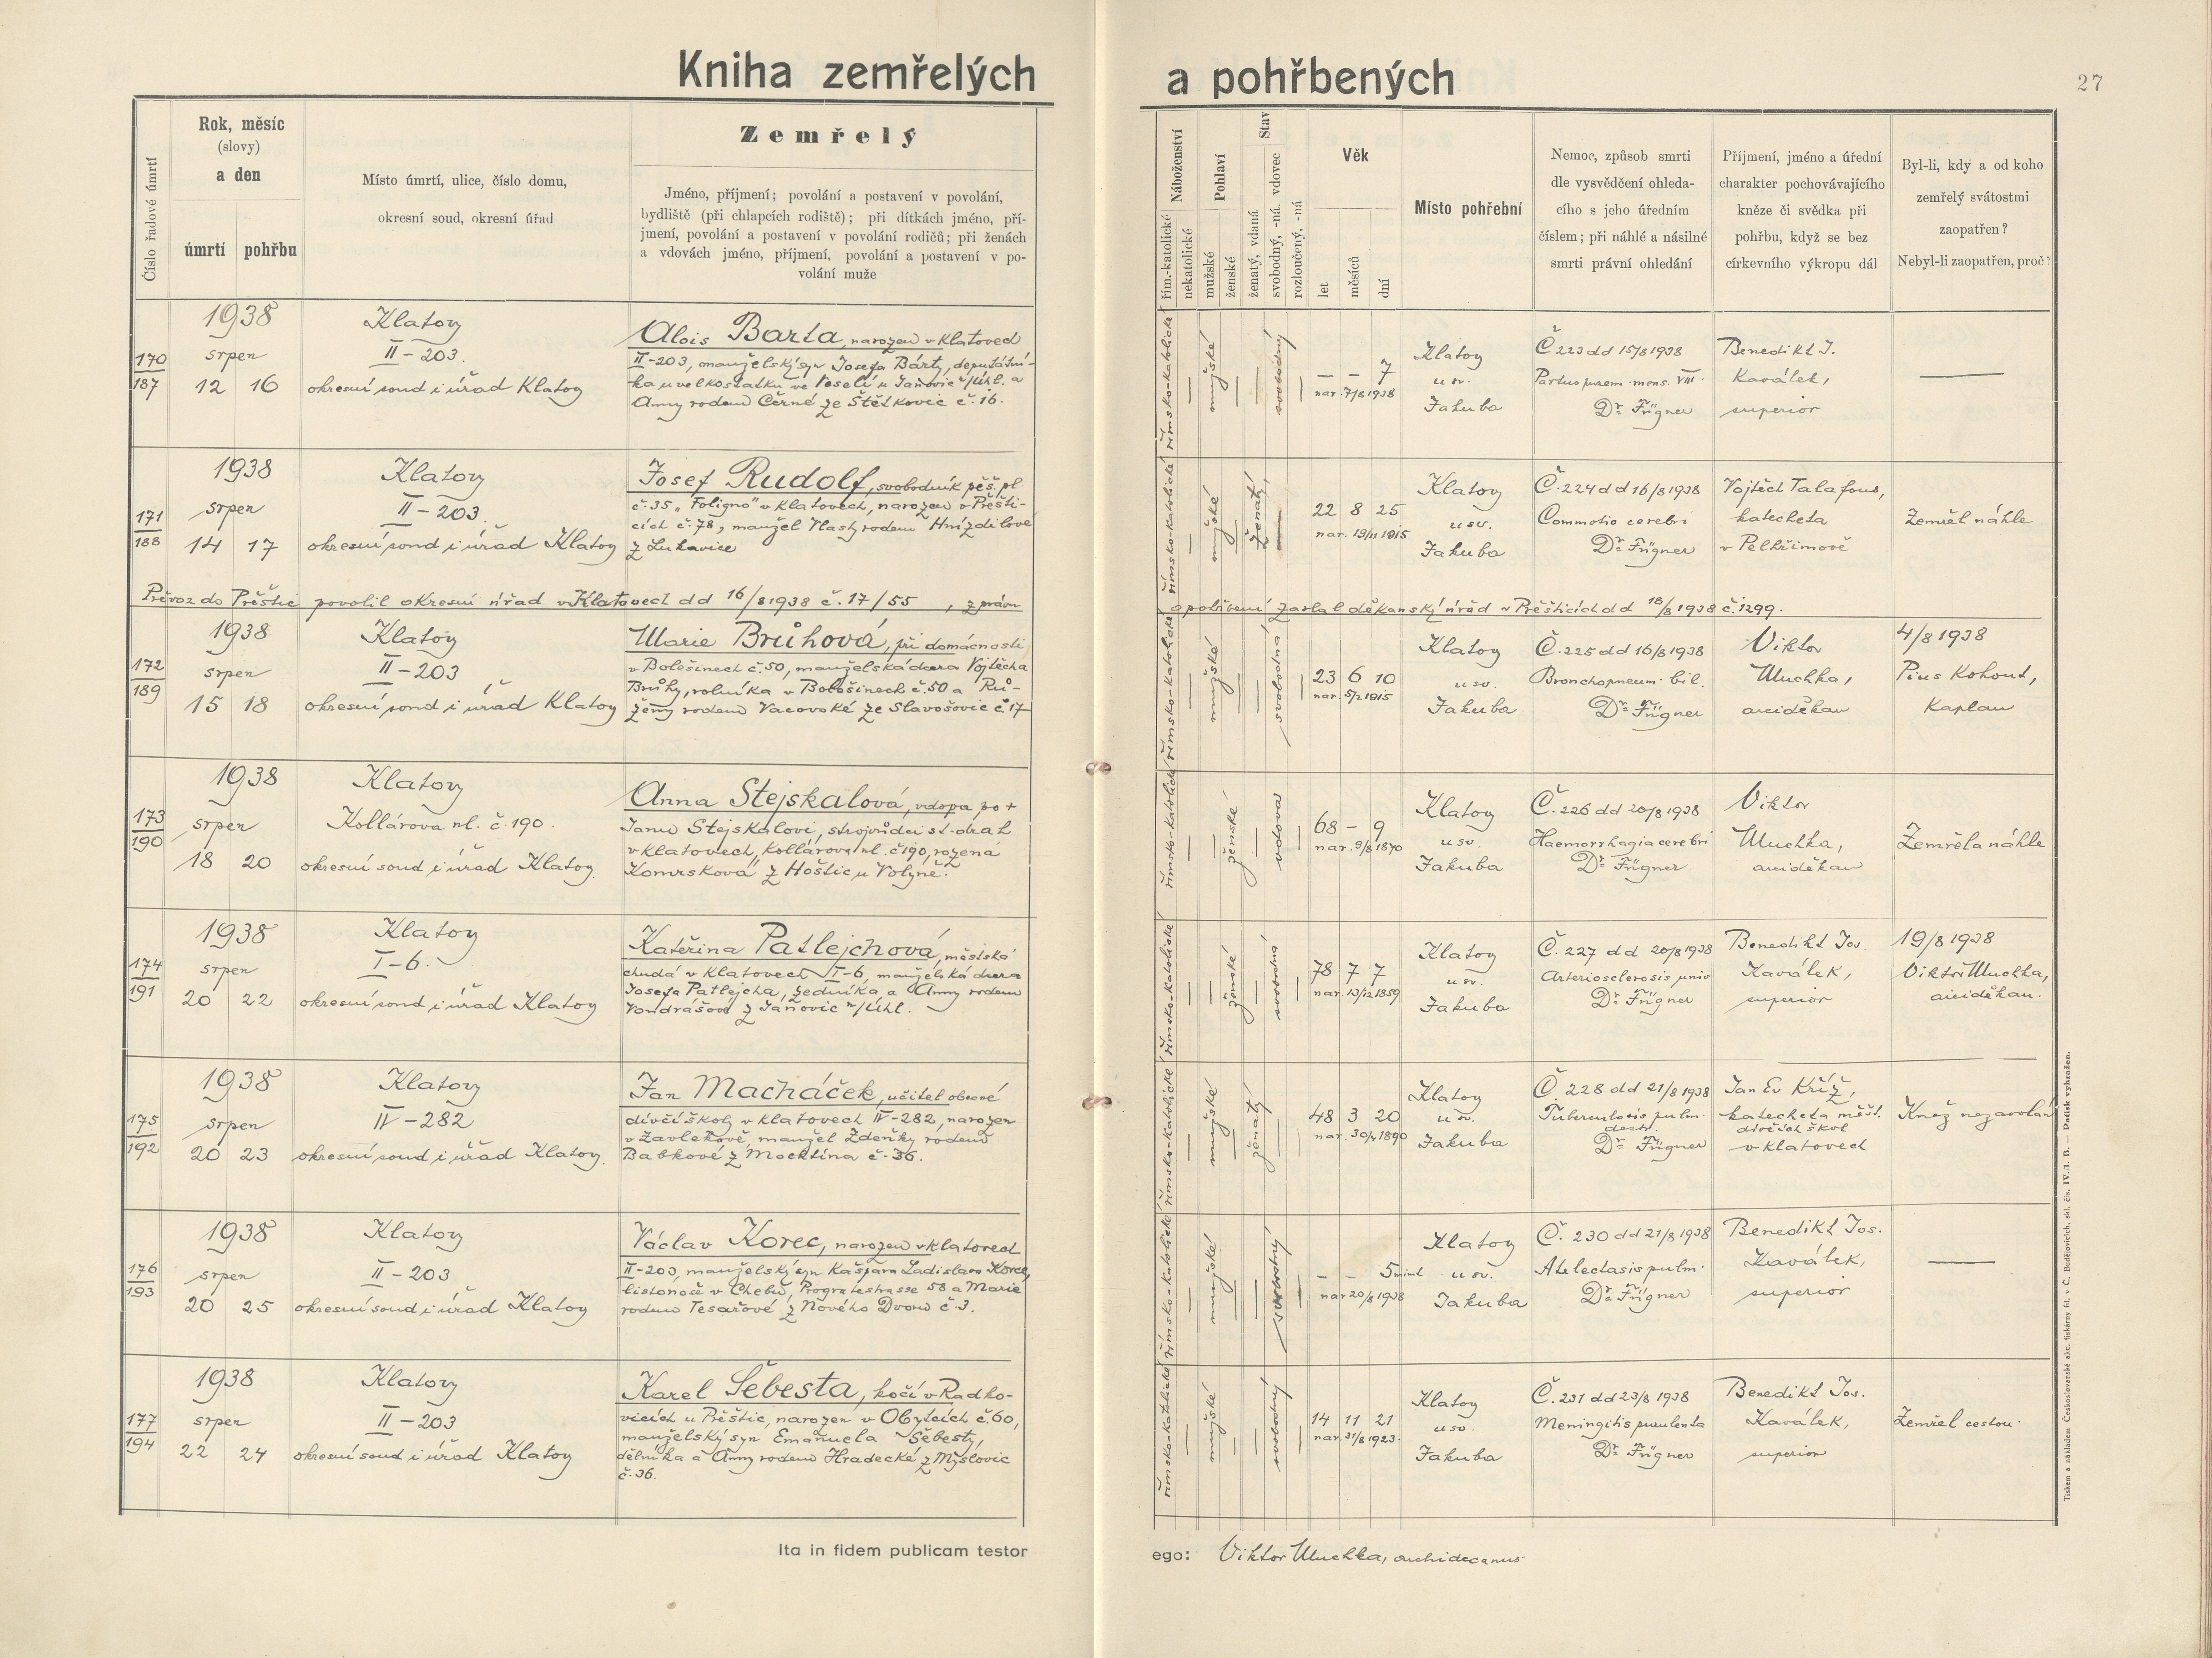 Kniha zemřelých a pohřbených
27
Číslo řadové úmrtí
Rok, měsíc
(slovy)
a den
úmrtí
pohřbu
Místo úmrtí, ulice, číslo domu,
okresní soud, okresní úřad
Zemřelý
Jméno, příjmení; povolání a postavení v povolání,
bydliště (při chlapcích rodiště); při dítkách jméno, pří-
jmení, povolání a postavení v povolání rodičů; při ženách
a vdovách jméno, příjmení, povolání a postavení v po-
volání muže
Náboženství
řím.-katolické
nekatolické
Pohlaví
mužské
ženské
Stav
ženatý, vdaná
svobodný, -ná. vdovec
rozloučený, -ná
Věk
let
měsíců
dní
Místo pohřební
Nemoc, způsob smrti
dle vysvědčení ohleda-
cího s jeho úředním
číslem; při náhlé a násilné
smrti právní ohledání
Příjmení, jméno a úřední
charakter pochovávajícího
kněze či svědka při
pohřbu, když se bez
církevního výkropu dál
Byl-li, kdy a od koho
zemřelý svátostmi
zaopatřen?
Nebyl-li zaopatřen, proč?
170
187
1938
srpen
12 16
Klatovy
II-203.
okresní soud i úřad Klatovy
Alois Barta, narozen v Klatovech
II-203, manželský syn Josefa Bárty, deputátní-
ka u velkostatku ve Veselí u Janovic n/Úhl. a
Anny rodem Černé ze Štětkovic č. 16.
římsko-katolické
—
mužské
—
—
svobodný
—
— — 7
nar. 7/8 1938
Klatovy
u sv.
Jakuba
Č 223 dd 15/8 1938
Partus praem. mens. VIII.
Dr. Fügner
Benedikt J.
Kavalek,
superior
—
171
188
1938
srpen
14 17
Klatovy
II-203.
okresní soud i úřad Klatovy
Josef Rudolf, svobodník pěš. pl.
č. 35 „Foligno" v Klatovech, narozen v Přešti-
cích č. 78, manžel Vlasty rodem Hnízdilové
z Lukavice
římsko-katolické
—
mužské
—
ženatý,
—
22 8 25
nar. 19/11 1915
Klatovy
u sv.
Jakuba
Č. 224 dd 16/8 1938
Commotio cerebri
Dr. Fügner
Vojtěch Talafous,
katecheta
v Pelhřimově
Zemřel náhle
Převoz do Přeštic povolil okresní úřad v Klatovech dd 16/8 1938 č. 17/55, zprávu
o pohřbení zaslal děkanský úřad v Přešticích dd 18/8 1938 č. 1299.
172
189
1938
srpen
15 18
Klatovy
II-203
okresní soud i úřad Klatovy
Marie Brůhová, při domácnosti
v Bolešinech č. 50, manželská dcera Vojtěcha
Brůhy, rolníka v Bolešinech č. 50 a Rů-
ženy rodem Vacovské ze Slavošovic č. 17
římsko-katolické
—
mužské
—
—
svobodná
—
23 6 10
nar. 5/2 1915
Klatovy
u sv.
Jakuba
Č. 225 dd 16/8 1938
Bronchopneum. bil.
Dr. Fügner
Viktor
Muchka,
arciděkan
4/8 1938
Pius Kohout,
Kaplan
173
190
1938
srpen
18 20
Klatovy
Kollárova ul. č. 190.
okresní soud i úřad Klatovy
Anna Stejskalová, vdova po +
Janu Stejskalovi, strojvůdci st. drah
v Klatovech, Kollárova ul. č 190, rozená
Komrsková z Hoštic u Volyně.
římsko-katolické
—
—
ženské
—
vdova
—
68 — 9
nar. 9/8 1870
Klatovy
u sv.
Jakuba
Č. 226 dd 20/8 1938
Haemorrhagia cerebri
Dr. Fügner
Viktor
Muchka,
arciděkan
Zemřela náhle
174
191
1938
srpen
20 22
Klatovy
I-6.
okresní soud i úřad Klatovy
Kateřina Patlejchová, městská
chudá v Klatovech I-6, manželská dcera
Josefa Patlejcha, zedníka a Anny rodem
Vondrášové z Janovic n/Úhl.
římsko-katolické
—
—
ženské
—
svobodná
—
78 7 7
nar. 13/12 1859
Klatovy
u sv.
Jakuba
Č. 227 dd 20/8 1938
Arteriosclerosis univ
Dr. Fügner
Benedikt Jos.
Kaválek,
superior
19/8 1938
Viktor Muchka,
arciděkan.
175
192
1938
srpen
20 23
Klatovy
IV-282
okresní soud i úřad Klatovy.
Jan Macháček, učitel obecné
dívčí školy v Klatovech IV-282, narozen
v Zavlekově, manžel Zdeňky rodem
Babkové z Mochtína č. 36.
římsko-katolické
—
mužské
—
ženatý
—
—
48 3 20
nar. 30/4 1890
Klatovy
u sv.
Jakuba
Č. 228 dd 21/8 1938
Tuberculosis pulm.
destr.
Dr. Fügner
Jan Ev Kříž,
katecheta měšť.
dívčích škol
v Klatovech
Kněz nezavolán
176
193
1938
srpen
20 25
Klatovy
II-203
okresní soud i úřad Klatovy
Václav Korec, narozen v Klatovech
II-203, manželský syn Kašpara Ladislava Korce,
listonoše v Chebu, 58 a Marie
rodem Tesařové z Nového Dvoru č. 3.
římsko-katolické
—
mužské
—
—
svobodný
—
— — 5 minut
nar 20/8 1938
Klatovy
u sv.
Jakuba
Č. 230 dd 21/8 1938
Atelectasis pulm.
Dr. Fügner
Benedikt Jos.
Kaválek,
superior
—
177
194
1938
srpen
22 24
Klatovy
II-203
okresní soud i úřad Klatovy
Karel Šebesta, kočí v Radko-
vicích u Přeštic, narozen v Obytcích č. 60,
manželský syn Emanuela Šebesty,
dělníka a Anny rodem Hradecké z Myslovic
č. 36.
římsko-katolické
—
mužské
—
—
svobodný
—
14 11 21
nar. 31/8 1923.
Klatovy
u sv.
Jakuba
Č. 231 dd 23/8 1938
Meningitis purulenta
Dr. Fügner
Benedikt Jos.
Kaválek,
superior
Zemřel cestou.
Ita in fidem publicam testor
ego: Viktor Muchka, archidecanus
Tiskem a nákladem Československé akc. tiskárny fil. v Č. Budějovicích, skl. čís. IV./1. B. — Patisk vyhražen.